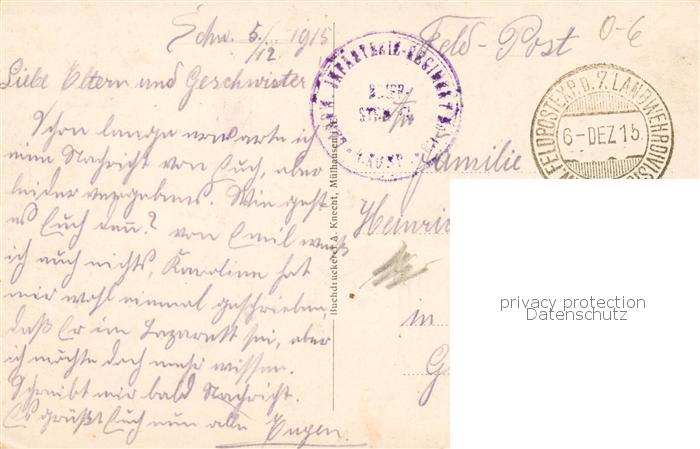 Schw. 5./12 1915
Liebe Eltern und Geschwister!
Schon lange erwarte ich
eine Nachricht von Euch, aber
leider vergebens. Wie geht
es Euch denn? von Emil weiß
ich auch nichts, Karoline hat
mir wohl einmal geschrieben,
daß Er im Lazarett sei, aber
ich möchte doch mehr wissen.
Schreibt mir bald Nachricht.
Es grüßt Euch nun alle Eugen.
Buchdruckerei A. Knecht, Mülhausen i. Els.
Feld-Post
INFANTERIE-REGIMENT
K.W. FELDPOSTEXP. D. 7. LANDWEHRDIVISION
6-DEZ 15.
Familie
Heinri
in
G
privacy protection
Datenschutz